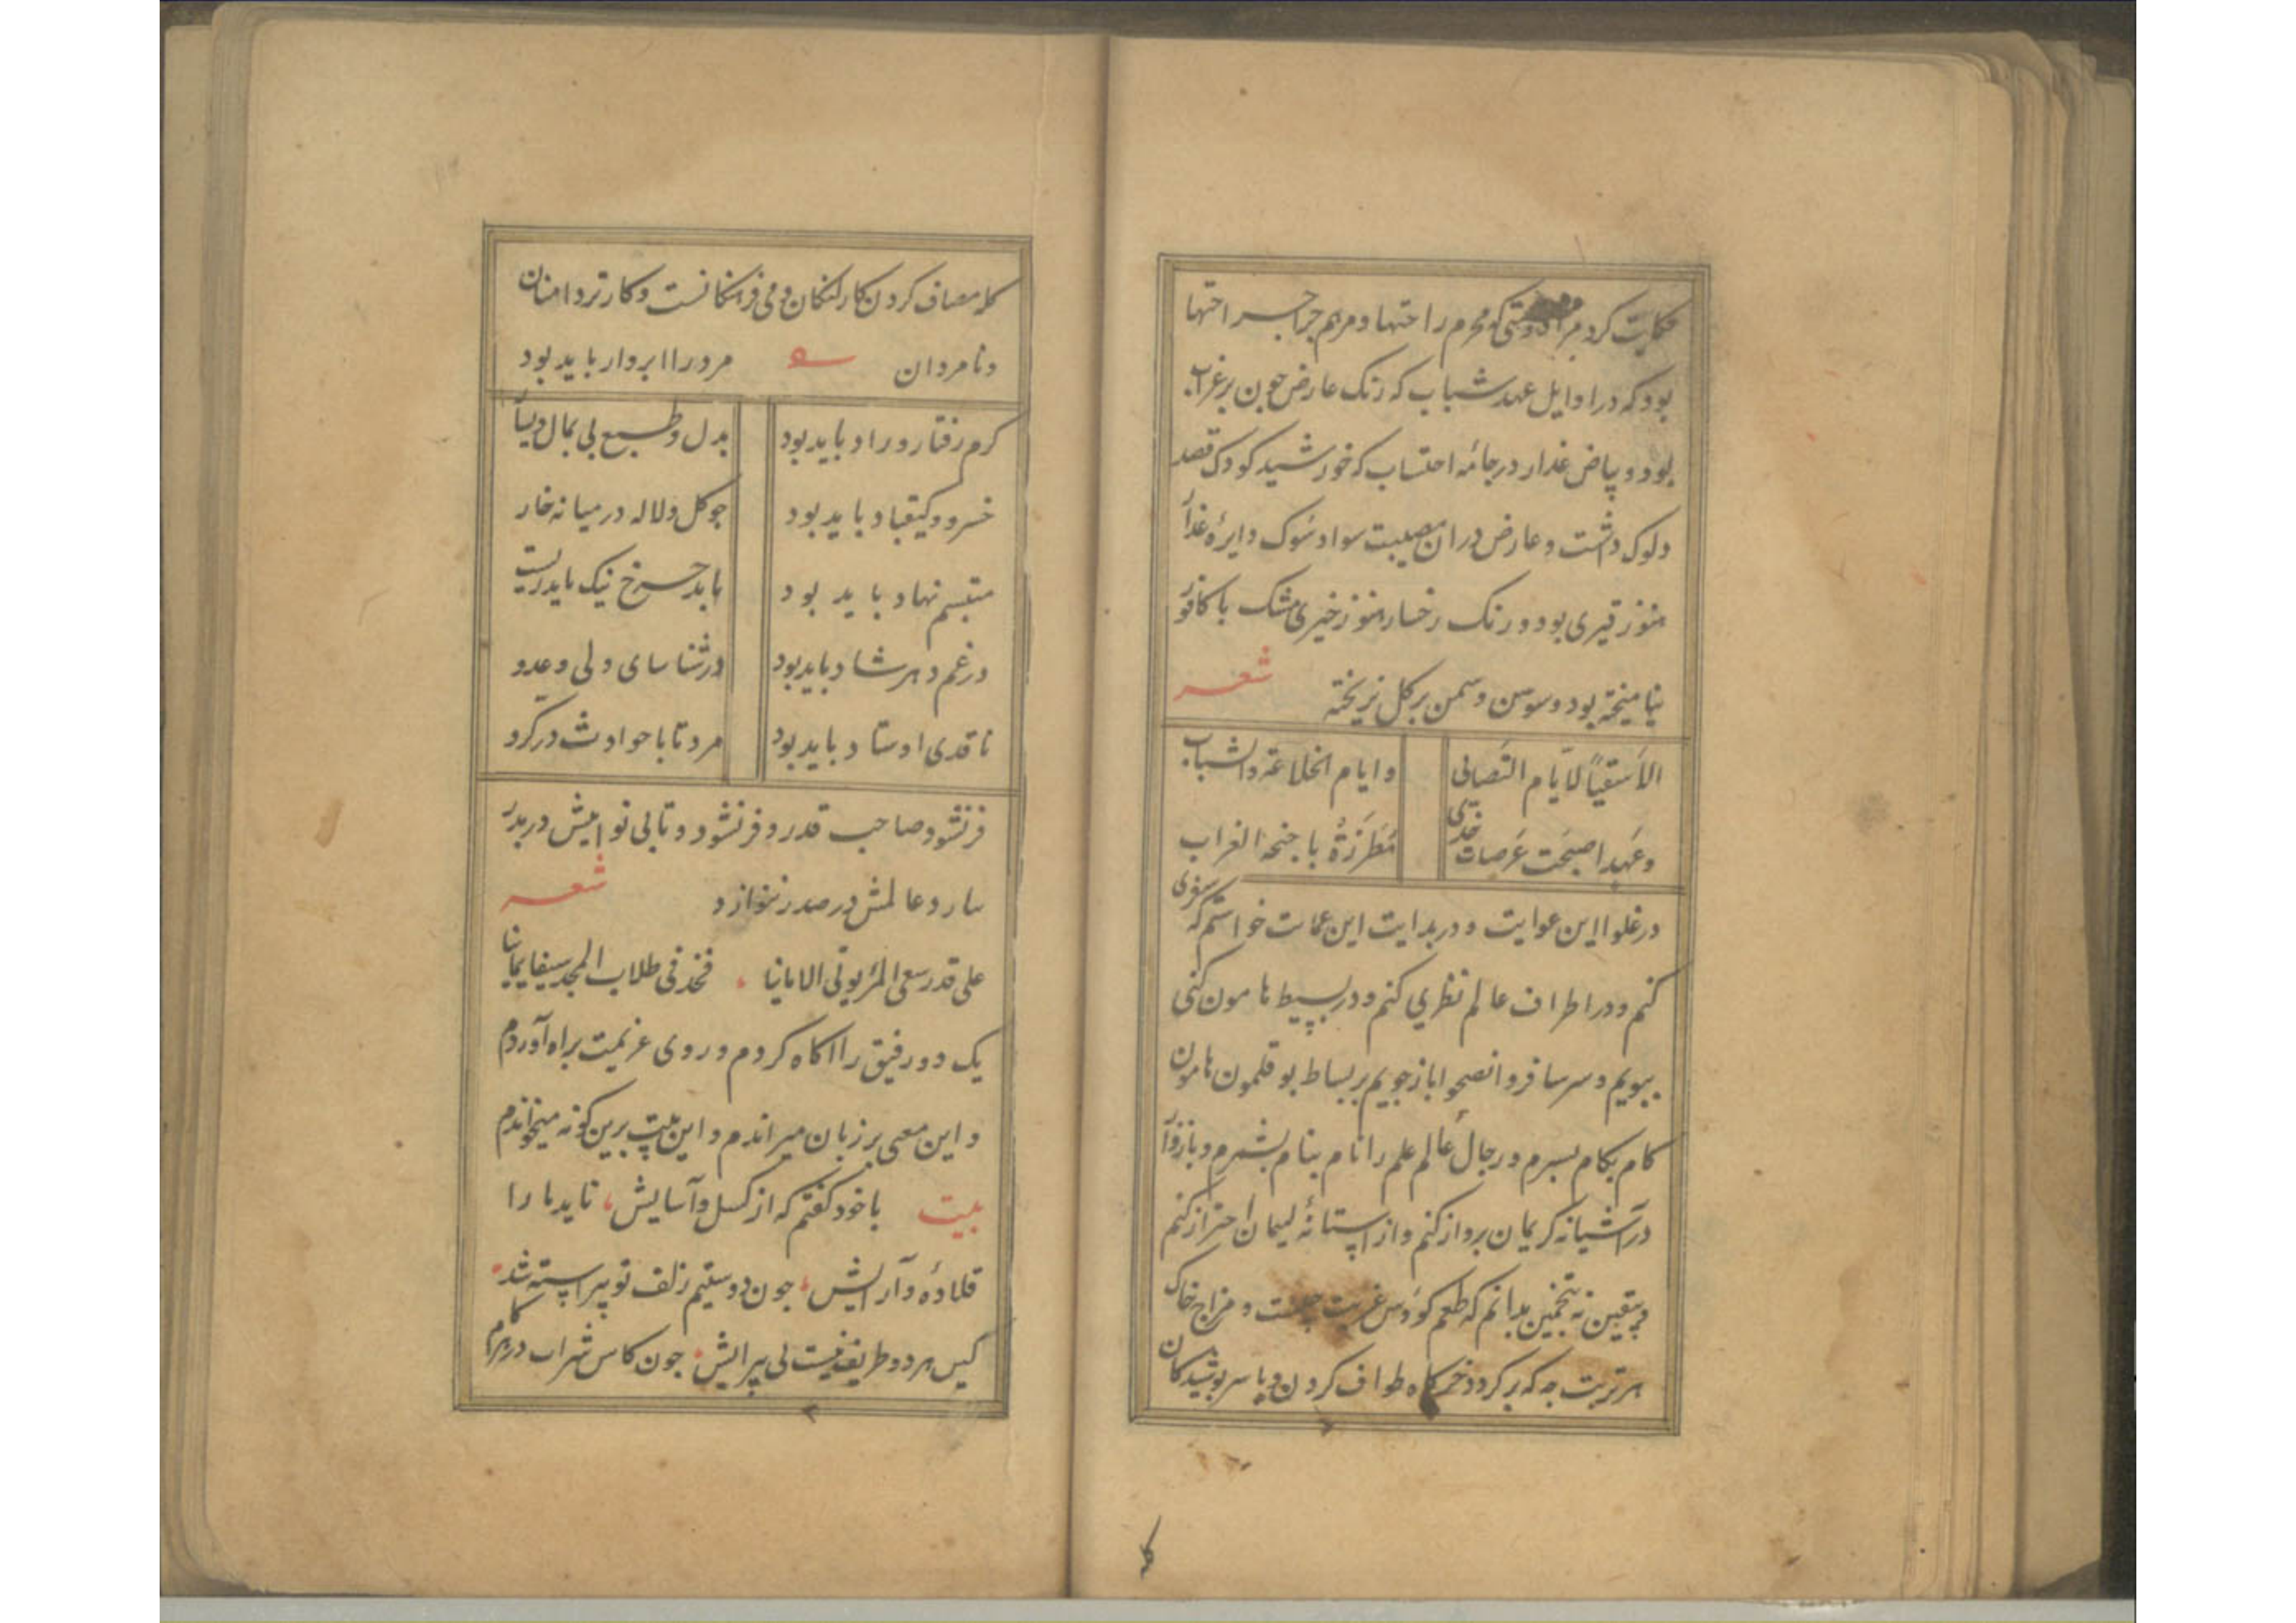 حکایت کرد مرا دوستی که محرم راحتها و مرهم جراحتها
بود که در اوایل عهد شباب که رنک عارض جون بر غراب
بود و بیاض عذار در جامهٔ احتساب که خورشید کودک قصد
دلوک داشت و عارض در ان مصیبت سواد سوک دایرهٔ عذار
هنوز قیری بود و رنک رخسار هنوز خیری مشک با کافور
نیامیخته بود و سوسن و سمن بر کل نریخته شعر
الا سقیاً لایّام التصابی وایام الخلاعة والشباب
وعهد اصبحت عرصات خدی مُطَرَّزةُ باجنحة الغراب
در غلوا این غوایت و در بدایت این عمایت خواستم که سفری
کنم و در اطراف عالم نظری کنم و در بسیط هامون کنی
بپویم و سر سافروا تصحوا باز جویم بر بساط بوقلمون هامون
کام بکام بسپرم و رجال عالم علم را نام بنام بشمرم و باز وار
در آشیانه کریمان پرواز کنم و از آستانهٔ لیمان احتراز کنم
و بیقین نه بتخمین بدانم که طعم کوس غربت چیست و مزاج خاک
هر تربت جه که بر کرد خرکاه طواف کردن و با سر پوشیدکان
کله
کله مصاف کردن کار لنکان و بی فرهنکانست و کار تردامنان
و نامردان مرد را ابروار باید بود
کرم رفتار و راد باید بود بدل و طبع بی بمال و یسار
خسرو و کیقباد باید بود جو کل و لاله در میانه خار
متبسم نهاد باید بود با بد جرخ نیک باید زیست
در غم دهر شاد باید بود در شناسای ولی و عدو
ناقدی اوستاد باید بود مرد تا با حوادث در کرو
فر نشود صاحب قدر و فر نشود و تا بی نوایش در بدر
سارد عالمش در صدر ننوازد شعر
علی قدر سعی المرء یوتی الامانیا فخذ فی طلاب المجد سیفا یمانیا
یک دو رفیق را اکاه کردم و روی عزیمت براه آوردم
و این معنی بر زبان میراندم و این بیت برین کونه میخواندم
بیت با خود کفتم که از کسل و آسایش ناید ما را
قلادهٔ و آرایش جون دوستیم زلف تو پیراسته شد
کیس هر دو طریف نیست بی پیرایش جون کاس شراب در کام